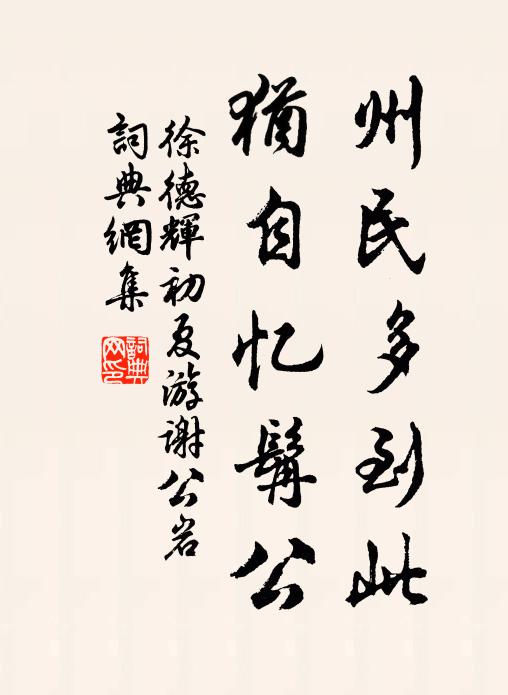 州民多到此
犹自忆髯公
徐德輝初夏游谢公岩
詞典網集
詞典
网印